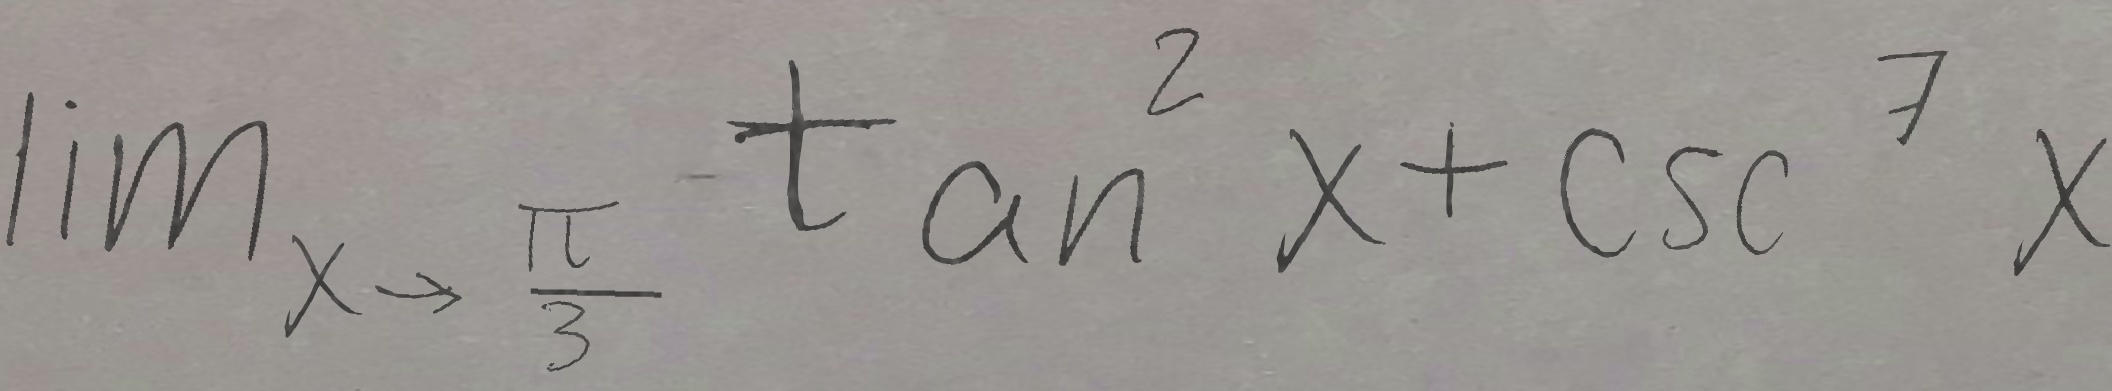 lim x→ π/3 - tan² x + csc⁷ x